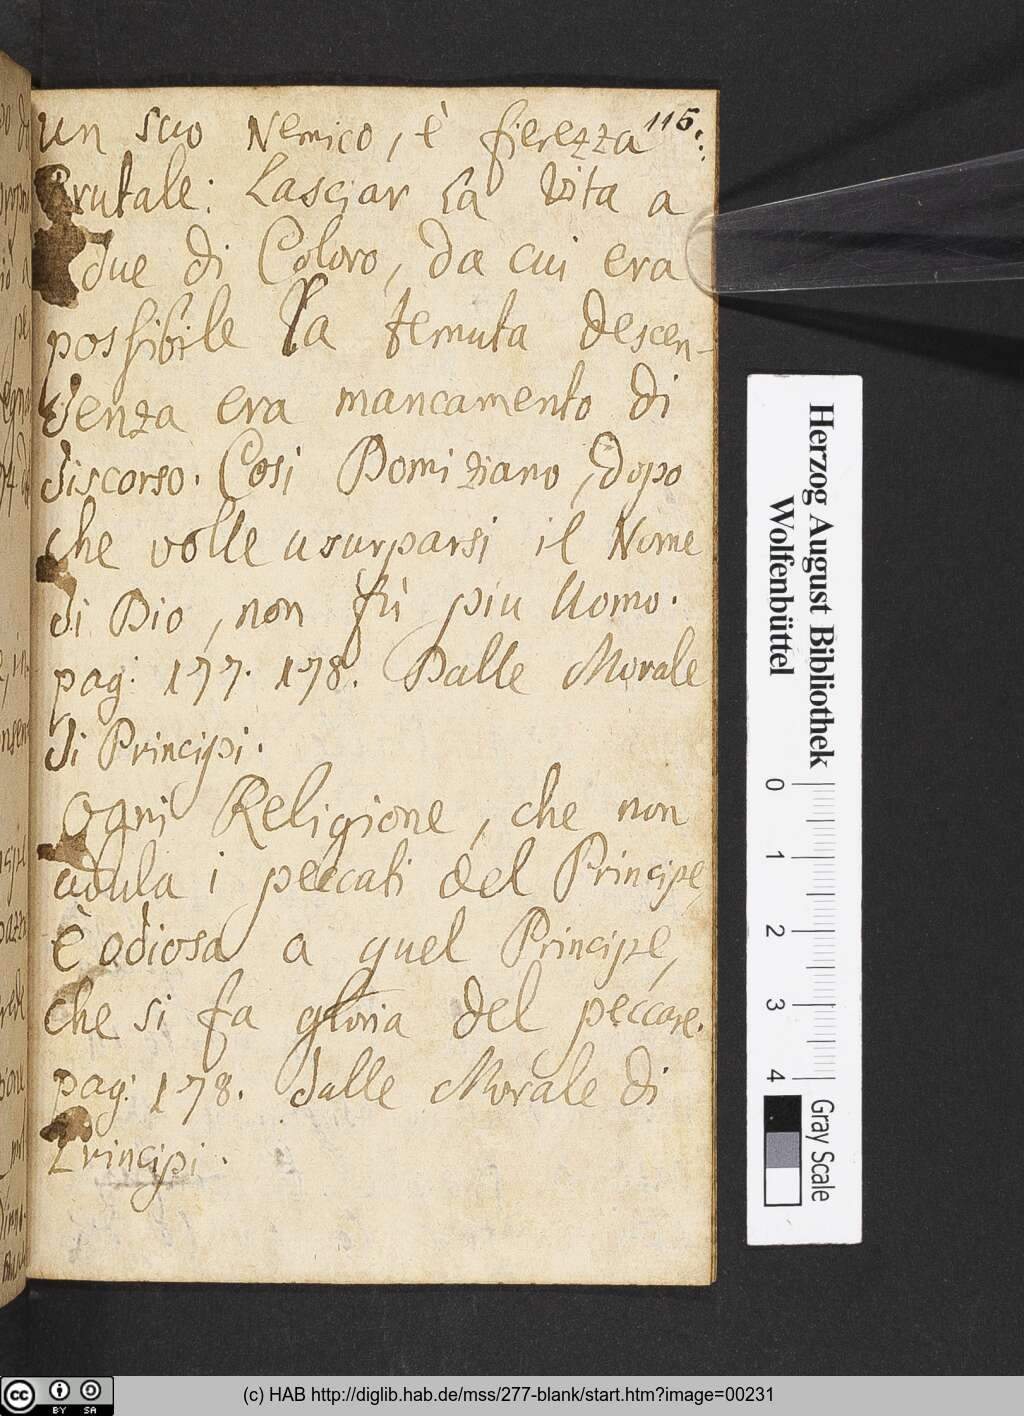 115.
un suo Nemico, è fierezza
Brutale: Lasciar La Vita a
due di Coloro, da cui era
possibile la temuta descen-
denza era mancamento di
discorso. Cosi Domiziano, dopo
che volle usurparsi il Nome
di Dio, non fù piu Uomo.
pag: 177. 178. Dalle Morale
di Principi.
Ogni Religione, che non
adula i peccati del Principe,
è odiosa a quel Principe,
che si fa gloria del peccare.
pag: 178. dalle Morale di
Principi.
Herzog August Bibliothek
Wolfenbüttel
0 1 2 3 4
Gray Scale
cc BY SA
(c) HAB http://diglib.hab.de/mss/277-blank/start.htm?image=00231